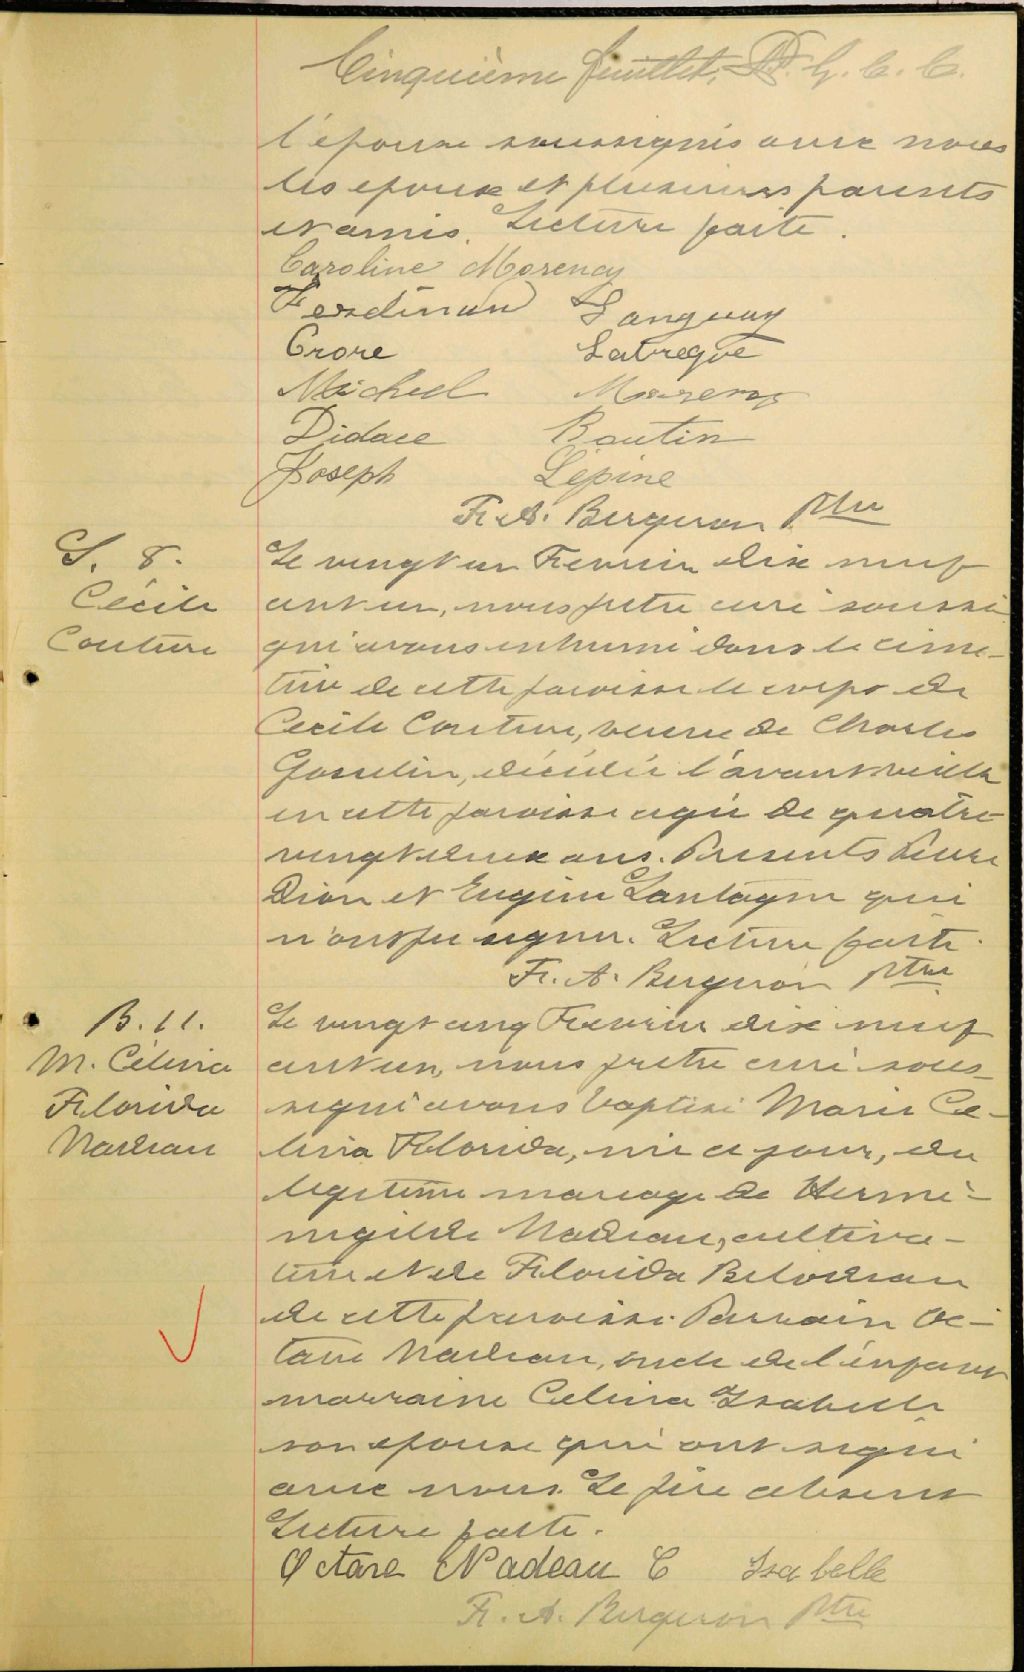 Cinquième feuillet, D. G. C. C.
l'épouse soussignés avec nous
les epoux et plusieurs parents
et amis. Lecture faite.
Caroline Morency
Ferdinan Languay
Latreque
Michel Morency
Didace Boutin
Joseph Lépine
Fr. A. Bergeron Ptre
S. 8.
Cécile
Couture
Le vingt un Fevrier dix neuf
cent un, nous prêtre curé soussi
gné avons inhumé dans le cime-
tière de cette paroisse le corps de
Cecile Couture, veuve de Charles
Gosselin, décédée l'avant veille
en cette paroisse agée de quatre-
vingt deux ans. Presents Pierre
Dion et Eugène Lantagne qui
n'ont pu signer. Lecture faite.
Fr. A. Bergeron Ptre
B. 11.
M. Célina
Florida
Nadeau
Le vingt cinq Fevrier dix neuf
cent un, nous prêtre curé sous-
signé avons baptisé Marie Cé-
lina Florida, née ce jour, du
legitime mariage de Hermé-
négilde Nadeau, cultiva-
teur et de Florida Bilodeau
de cette paroisse. Parrain Oc-
tave Nadeau, oncle de l'enfant
marraine Celina Isabelle
son epouse qui ont signé
avec nous. Le père absent
Lecture faite.
Octave Nadeau C Isabelle
Fr. A. Bergeron Ptre